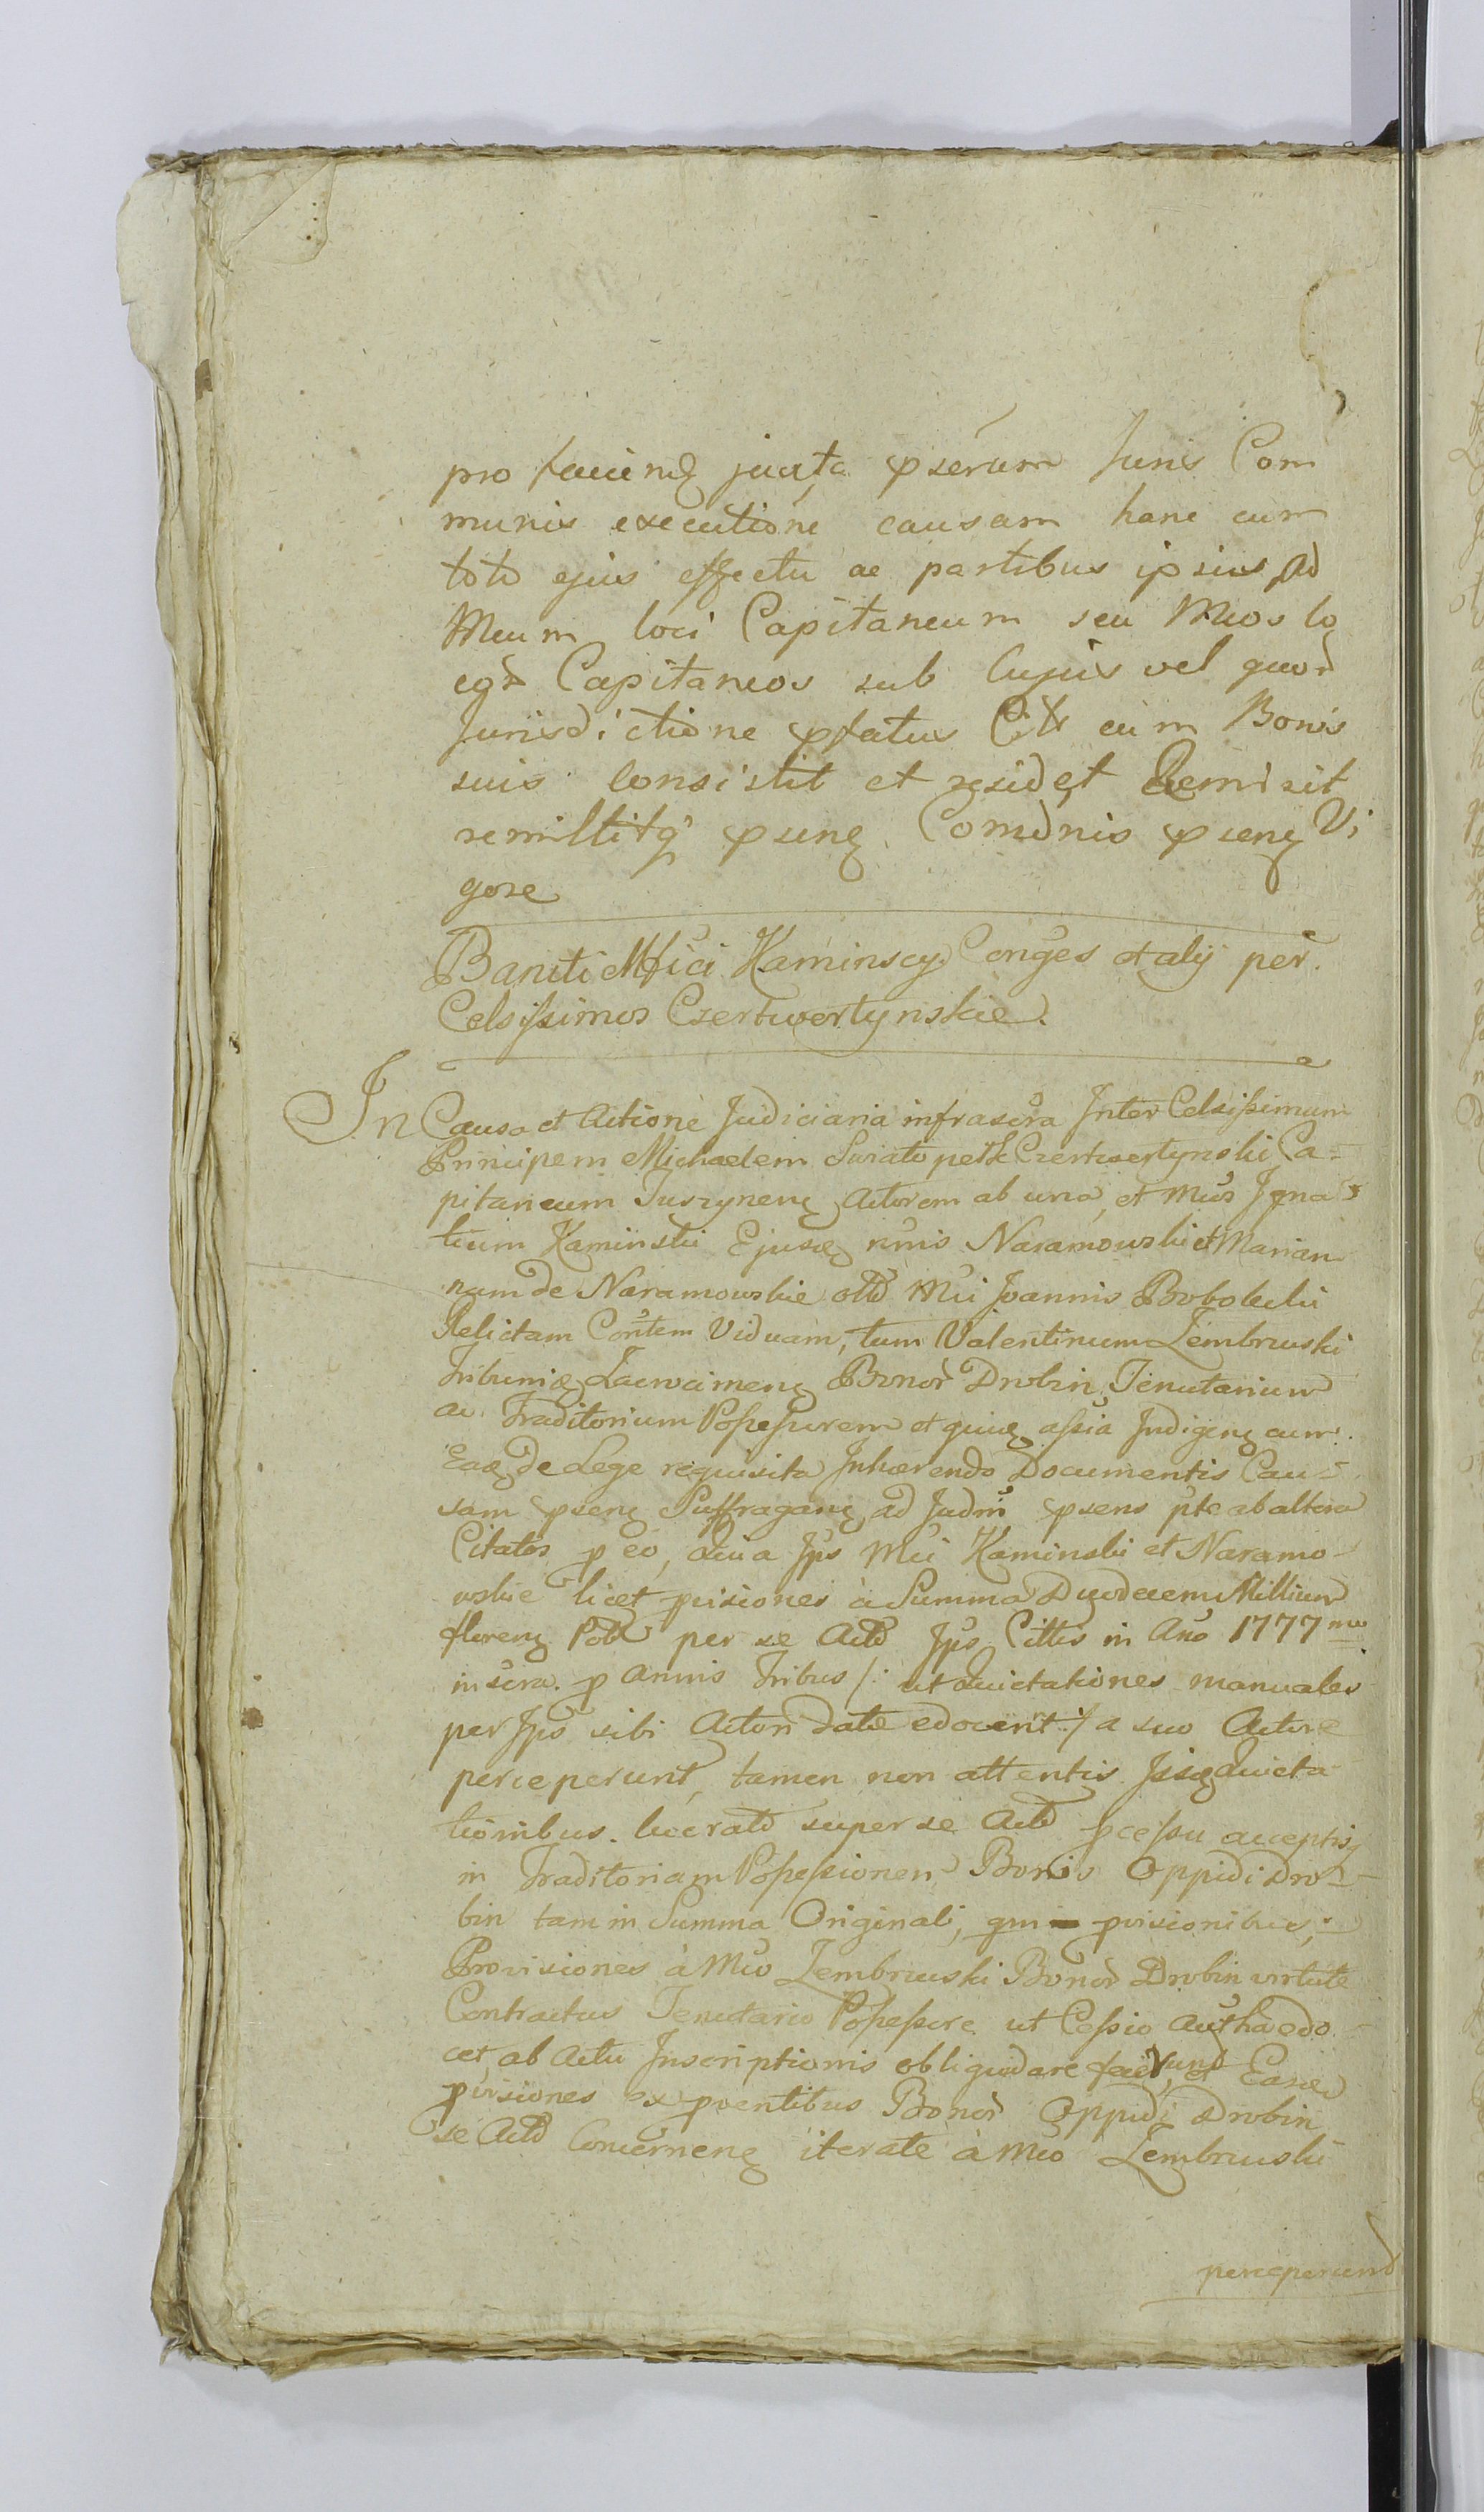 pro faciend juxta pserum Juris Com
munis executione causam hanc cum
toto ejus effectu ac partibus ipsius ad
Meum loci Capitaneum seu Meos lo
cor Capitaneos sub Cujus vel quor
Jurisdictione pfatus Citt cum Bonis
suis Consistit et residet Remisit
remittitq psen Comdnis psen Vi
gore
Baniti Mfici Kaminscy Conges et alij per
Celsissimos Czertwertynskie.
In Causa et Actione Judiciaria infrascra Inter Celsissimum
Principem Michaelem Swiatopełk Czertwertynski Ca=
pitaneum Tuszynen Actorem ab una, et Mcos Igna
tium Kaminski Ejusq Naramowski et Marian
nam de Naramowskie olld Mci Joannis Bobolecki
Relictam Contem Viduam, tum Valentinum Zembrzuski
Tribunid Bonor Drobin Tenutarium
ac Traditorium Possessorem et assia Indigen cum
Ead de Lege requisita Inhærendo Documentis Cau=
sam psen Suffragan ad Judm psens pte ab altera
Citatos p eo, Quia Ips Mci Kaminski et Naramo-
wskie licet pvisiones à Summa Duodecem Millium
floren Pol per se Acto Ips Cittis in Ano 1777mo
inscra. p Annis Tribus /: ut Quietationes manuales
per Ips sibi Actori datæ edocent :/ a suo Actore
perceperunt, tamen non attentis Isisq Quieta
tionibus. lucrato super se Acto pcessu acceptis
in Traditoriam Possessionem Bonis Oppidi Dro=
bin tam in Summa Originali, qm pvisionibus,
Provisiones à Mco Zembrzuski Bonor Drobin virtute
Contractus Tenutario Possessore ut Cessio Autha edo
cet ab Actu Inscriptionis obliquidare fecerund et Easd
pvisiones ex pventibus Bonor Oppidi Drobin
se Acto Concernen iterate à Mco Zembrzuski
perceperund